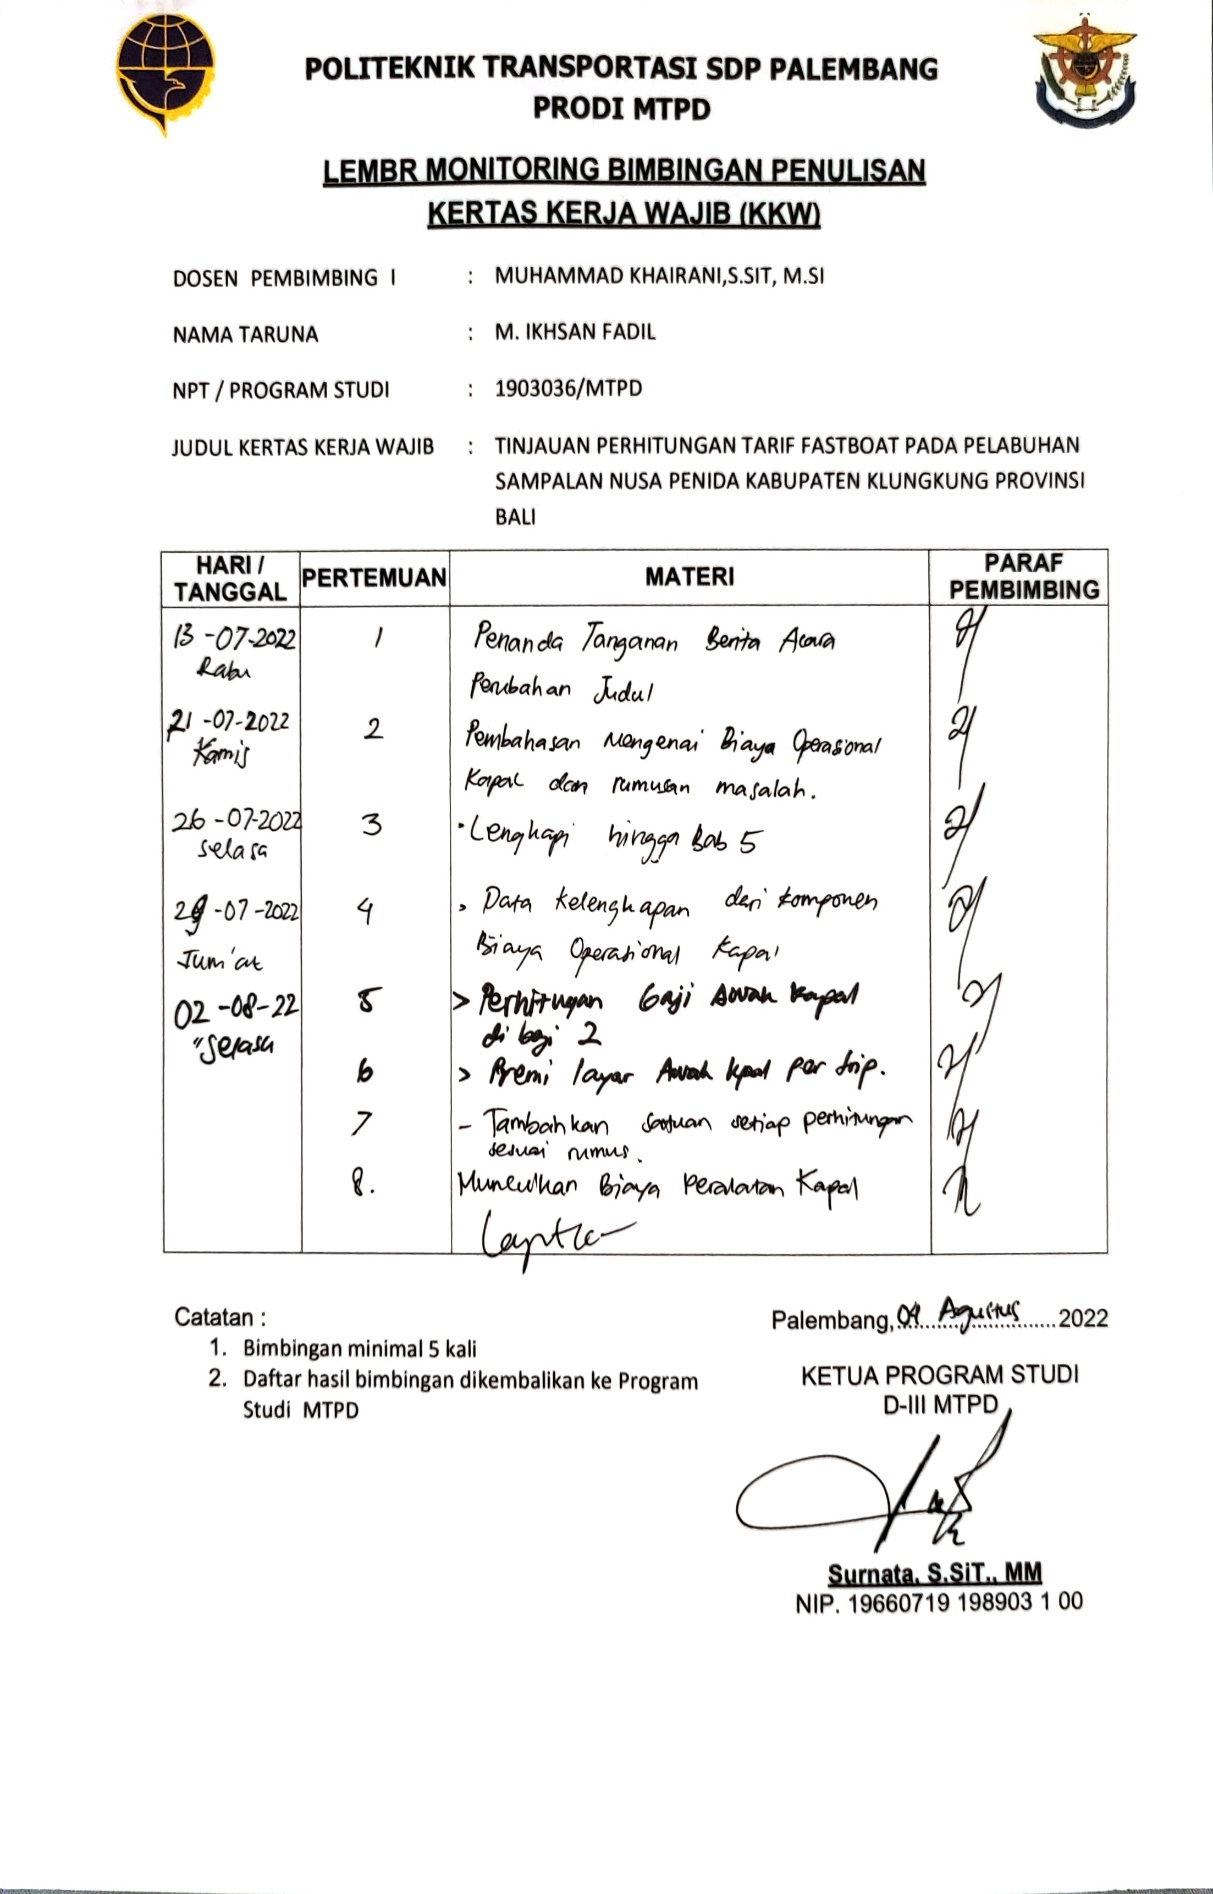 POLITEKNIK TRANSPORTASI SDP PALEMBANG
PRODI MTPD
LEMBR MONITORING BIMBINGAN PENULISAN
KERTAS KERJA WAJIB (KKW)
DOSEN PEMBIMBING I : MUHAMMAD KHAIRANI,S.SIT, M.SI
NAMA TARUNA : M. IKHSAN FADIL
NPT / PROGRAM STUDI : 1903036/MTPD
JUDUL KERTAS KERJA WAJIB : TINJAUAN PERHITUNGAN TARIF FASTBOAT PADA PELABUHAN
SAMPALAN NUSA PENIDA KABUPATEN KLUNGKUNG PROVINSI
BALI
HARI / TANGGAL PERTEMUAN MATERI PARAF PEMBIMBING
13-07-2022 1 Penanda Tanganan Berita Acara
Rabu Perubahan Judul
21-07-2022 2 Pembahasan Mengenai Biaya Operasional
Kamis Kapal dan rumusan masalah.
26-07-2022 3 Lengkapi hingga Bab 5
Selasa
29-07-2022 4 Data kelengkapan dari komponen
Jum'at Biaya Operasional Kapal
02-08-22 5 > Perhitungan Gaji Awak Kapal
"Selasa di bagi 2
6 > Premi layar Awak kpal per trip.
7 - Tambahkan satuan setiap perhitungan
sesuai rumus.
8. Munculkan Biaya Peralatan Kapal
Catatan :
1. Bimbingan minimal 5 kali
2. Daftar hasil bimbingan dikembalikan ke Program
Studi MTPD
Palembang, Agustus 2022
KETUA PROGRAM STUDI
D-III MTPD
Surnata, S.SiT., MM
NIP. 19660719 198903 1 00